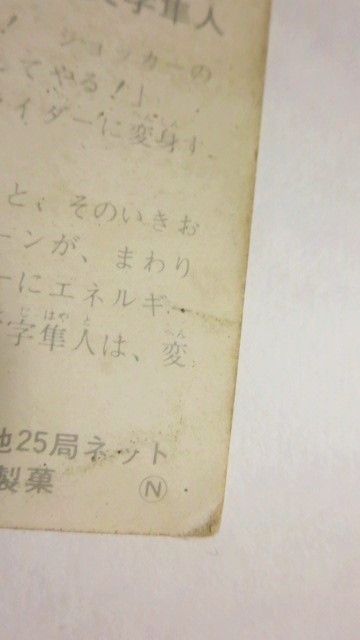 字隼人
！ ショッカーの
てやる！」
イダーに変身す
と、そのいきお
ーンが、まわり
ーにエネルギー
字隼人は、変
じ はや と へん
他25局ネット
製菓 Ⓝ